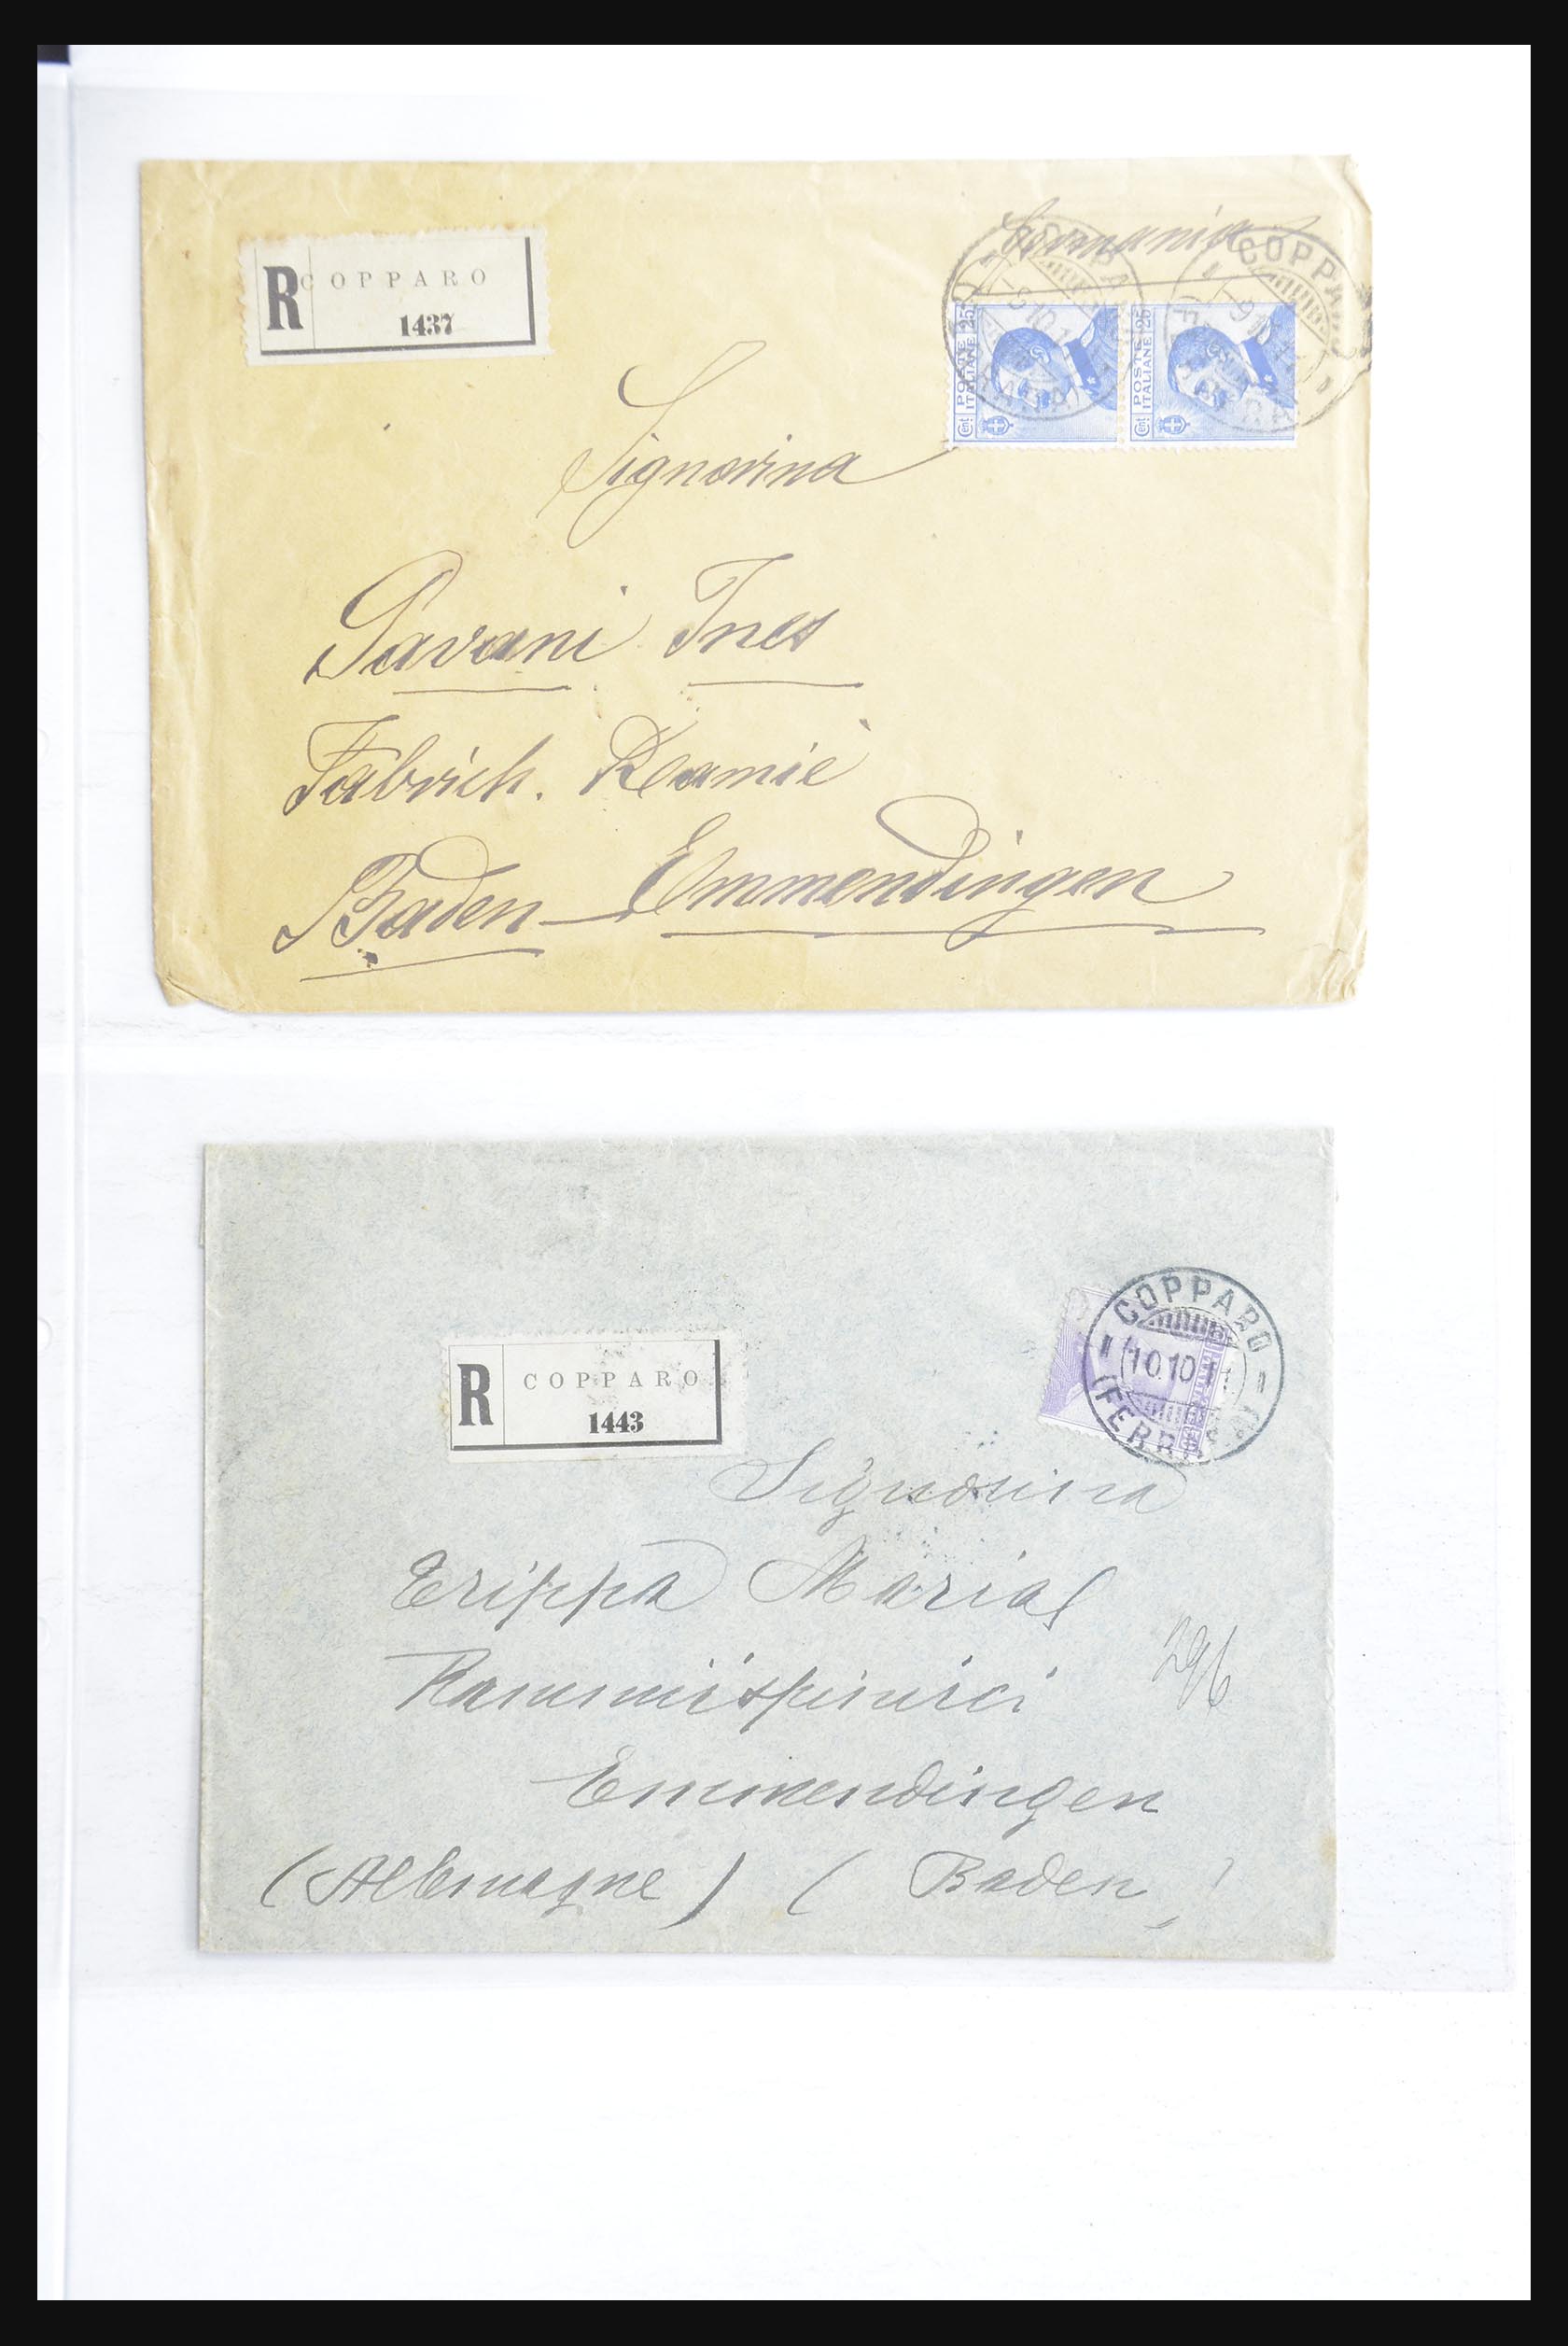 R COPPARO
1437
Germania
COPPARO
9 10 11
COPPARO
POSTE ITALIANE 25
Cent
POSTE ITALIANE 25
Cent
Signorina
Pavani Ines
Fabrich. Ramie
Baden - Emmendingen
COPPARO
10.10.11
(FERRARA)
R COPPARO
1443
Signorina
Erippa Maria
296
Emmendingen
(Allemagne) (Baden)